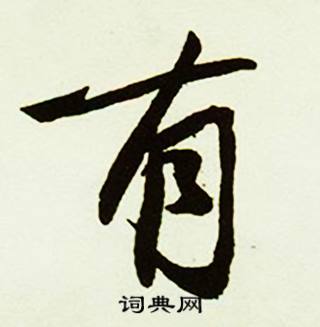 有
词典网